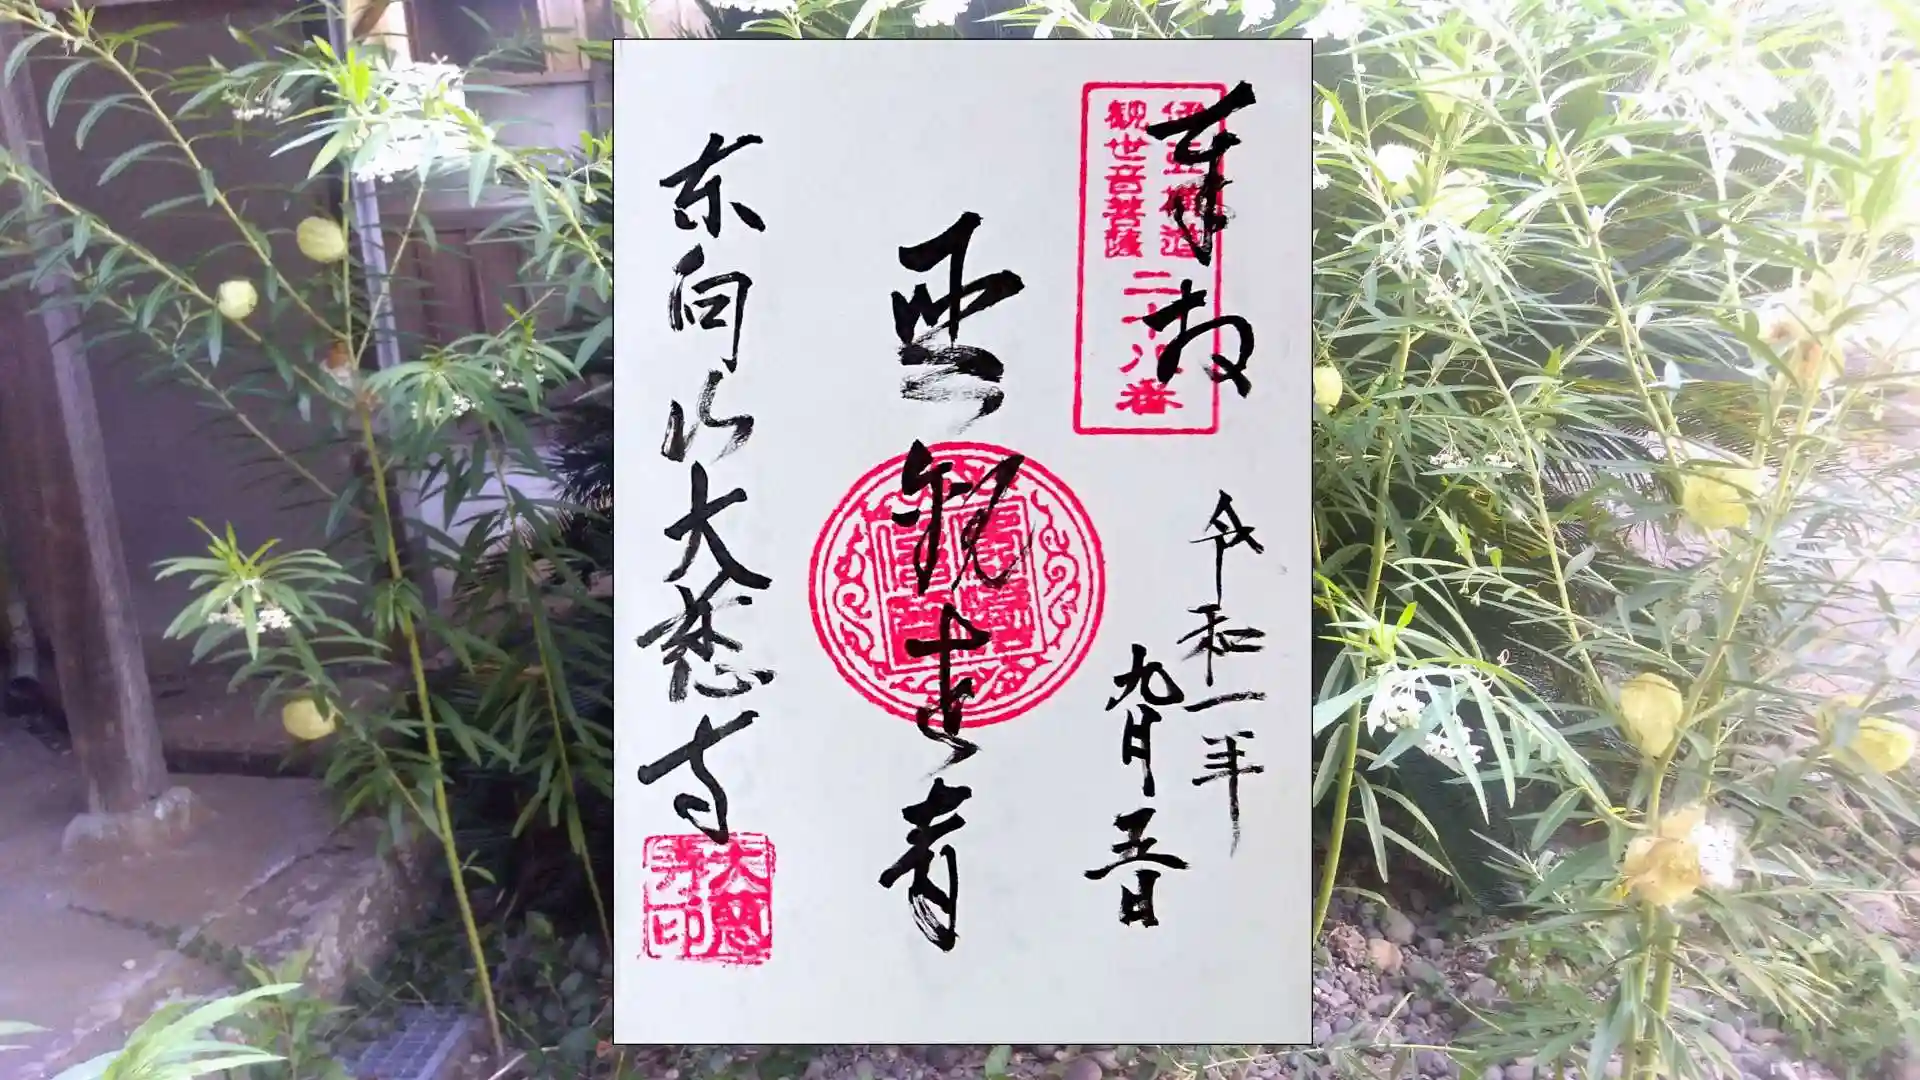 奉拝
伊豆横道
観世音菩薩
二十八番
令和一年
九月五日
聖観世音
東向山大慈寺
大慈
寺印